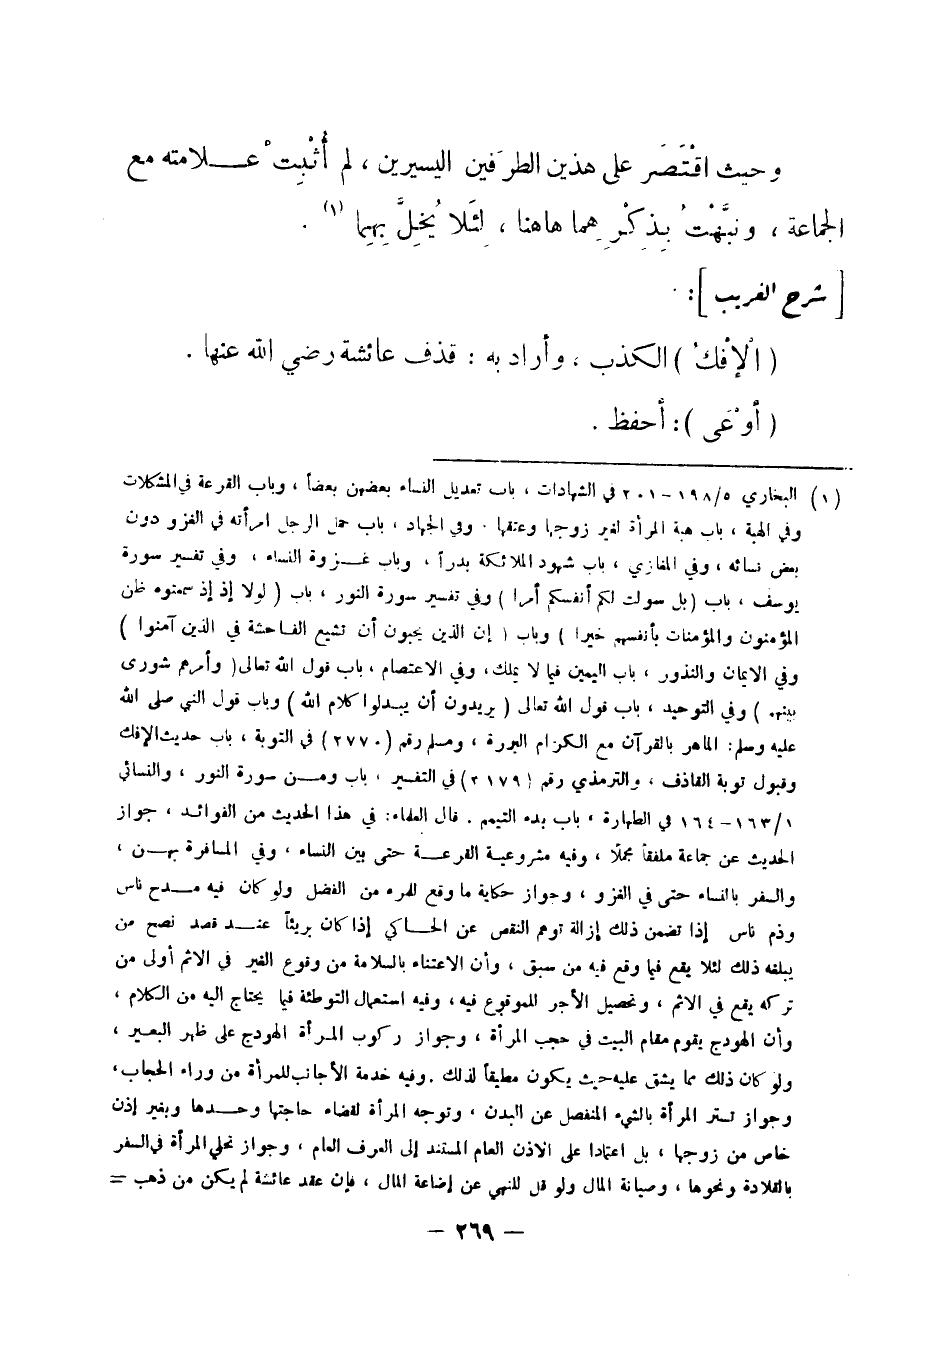 وحيث اقْتَصَر على هذين الطرَفين اليسيرين ، لم أُثْبِتْ عـــلامته مع
الجماعة ، ونبَّهْتُ بِذِكْرِهما هاهنا ، لِئَلا يُخِلَّ بِهِما (١) .
[ شرح الغريب ] :
( الإفْكُ ) الكذب ، وأراد به : قذف عائشة رضي الله عنها .
( أوْعَى ) : أحفظ .
(١) البخاري ١٩٨/٥ - ٢٠١ في الشهادات ، باب تعديل النساء بعضهن بعضاً ، وباب القرعة في المشكلات
وفي الهبة ، باب هبة المرأة لغير زوجها وعتقها . وفي الجهاد ، باب حمل الرجل امرأته في الغزو دون
بعض نسائه ، وفي المغازي ، باب شهود الملائكة بدراً ، وباب غـــزوة النساء ، وفي تفسير سورة
يوسف ، باب ( بل سولت لكم أنفسكم أمرا ) وفي تفسير سورة النور ، باب ( لولا إذ إذ سمعتموه ظن
المؤمنون والمؤمنات بأنفسهم خيرا ) وباب ( إن الذين يحبون أن تشيع الفاحشة في الذين آمنوا )
وفي الايمان والنذور ، باب اليمين فيما لا يملك، وفي الاعتصام ، باب قول الله تعالى ( وأمرهم شورى
بينهم ) وفي التوحيد ، باب قول الله تعالى ( يريدون أن يبدلوا كلام الله ) وباب قول النبي صلى الله
عليه وسلم: الماهر بالقرآن مع الكرام البررة ، ومسلم رقم (٢٧٧٠) في التوبة ، باب حديث الإفك
وقبول توبة القاذف ، والترمذي رقم (٣١٧٩) في التفسير ، باب ومـــن سورة النور ، والنسائي
١٦٣/١-١٦٤ في الطهارة ، باب بدء التيمم . قال العلماء: في هذا الحديث من الفوائد ، جواز
الحديث عن جماعة ملفقاً مجملًا ، وفيه مشروعية القرعـــة حتى بين النساء ، وفي المسافرة بهـــن ،
والسفر بالنساء حتى في الغزو ، وجواز حكاية ما وقع للمرء من الفضل ولو كان فيه مـــدح ناس
وذم ناس إذا تضمن ذلك إزالة توهم النقص عن الحـــاكي إذا كان بريئاً عنـــد قصد نصح من
يبلغه ذلك لئلا يقع فيما وقع فيه من سبق ، وأن الاعتناء بالسلامة من وقوع الغير في الاثم أولى من
تركه يقع في الاثم ، وتحصيل الأجر للموقوع فيه، وفيه استعمال التوطئة فيما يحتاج اليه من الكلام ،
وأن الهودج يقوم مقام البيت في حجب المرأة ، وجواز ركوب المـرأة الهودج على ظهر البعـير ،
ولو كان ذلك مما يشق عليه حيث يكون مطيقاً لذلك .وفيه خدمة الأجانب للمرأة من وراء الحجاب،
وجواز تستر المرأة بالشيء المنفصل عن البدن ، وتوجه المرأة لقضاء حاجتها وحـــدها وبغير إذن
خاص من زوجها ، بل اعتمادا على الاذن العام المستند إلى العرف العام ، وجواز تحلي المرأة في السفر
بالقلادة ونحوها ، وصيانة المال ولو قل للنهي عن إضاعة المال ، فإن عقد عائشة لم يكن من ذهب =
- ٢٦٩ -